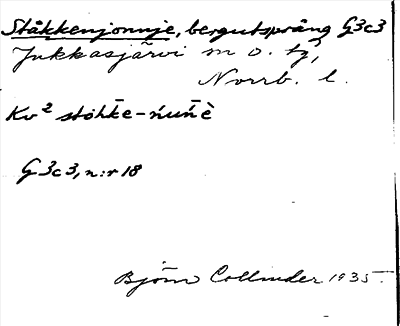 Ståkkenjonnje, bergutsprång G3c3
Jukkasjärvi m o. tg,
Norrb. l.
Kv² stȯhke-ńuńè
G3c3, n:r 18
Björn Collinder 1935.